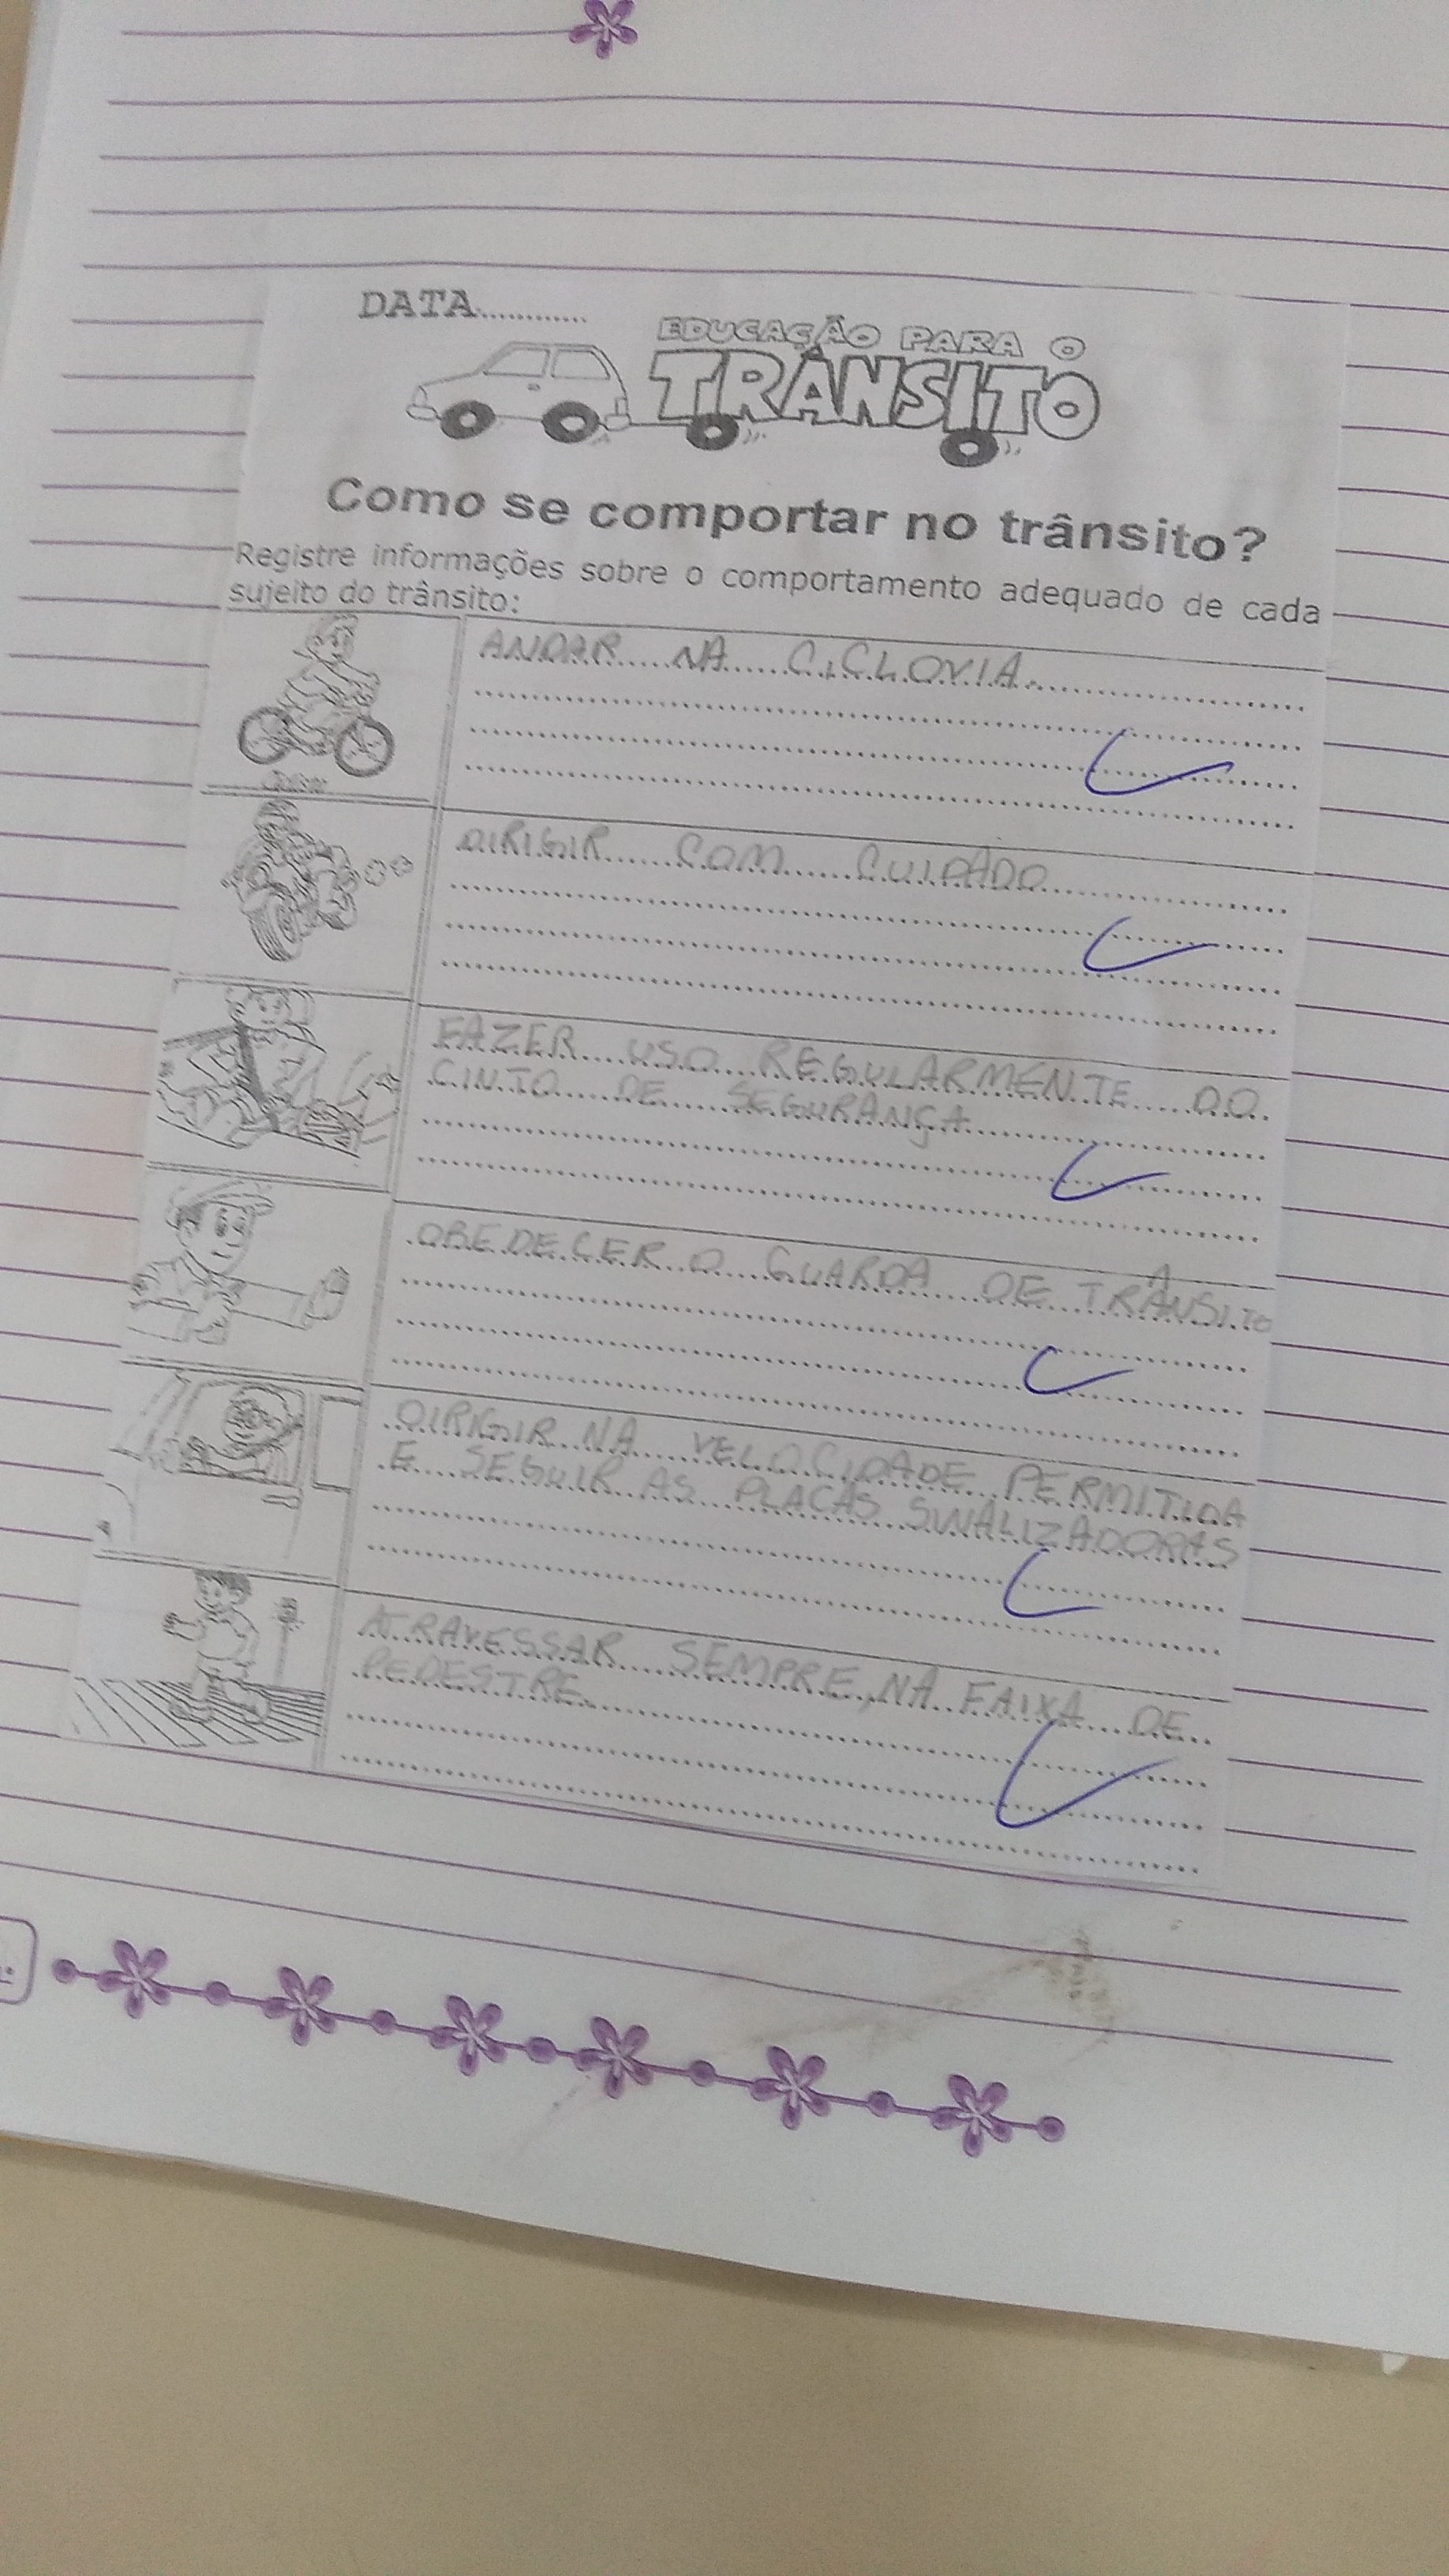 DATA............
EDUCAÇÃO PARA O
TRÂNSITO
Como se comportar no trânsito?
Registre informações sobre o comportamento adequado de cada
sujeito do trânsito:
ANDAR NA CICLOVIA.
DIRIGIR COM CUIDADO
FAZER USO REGULARMENTE DO
CINTO DE SEGURANÇA
OBEDECER O GUARDA DE TRÂNSITO
DIRIGIR NA VELOCIDADE PERMITIDA
E SEGUIR AS PLACAS SINALIZADORAS
ATRAVESSAR SEMPRE, NA FAIXA DE
PEDESTRE